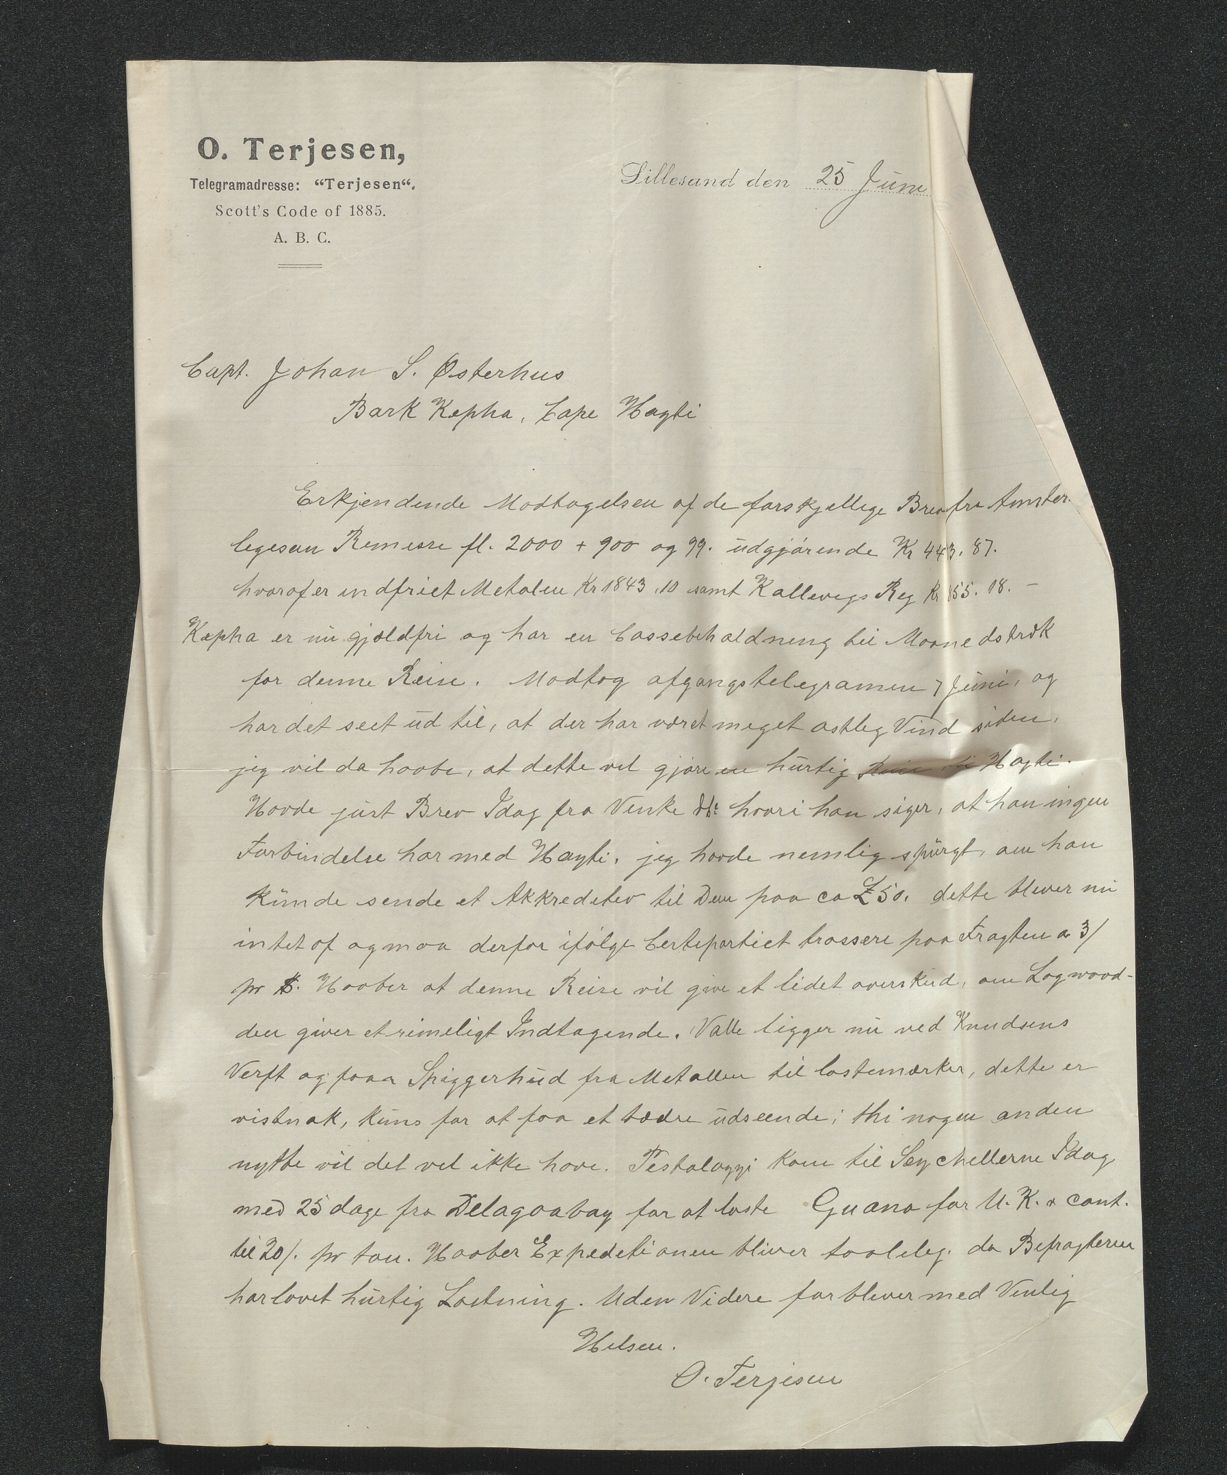 O. Terjesen,
Telegramadresse: “Terjesen“.
Scott's Code of 1885.
A. B. C.
Lillesand den 25 Juni
Capt. Johan S. Østerhus
Bark Kepha, Cape Hayti
Erkjendende Modtagelsen af de forskjellige Brev fra Amster
ligesaa Remesse fl. 2000 + 900 og 99. udgjörende Kr 443. 87.
hvoraf er indfriet Metalen Kr 1843.10 samt Kallevigs Reg Kr 155. 18. –
Kepha er nu gjældfri og har en Cassebeholdning til Maanedstræk
for denne Reise. Modtog afgangstelegramen 7 Juni, og
har det seet ud til, at der har været meget østlig Vind siden,
jeg vil da haabe, at dette vil gjøre en hurtig Reise til Hayti.
Havde just Brev Idag fra Venke hvori han siger, at han ingen
Forbindelse har med Hayti, jeg havde nemlig spurgt, om han
kunde sende et Akkreditiv til Dem paa ca £50. dette bliver nu
intet af og maa derfor ifølge Certepartiet trassere paa Fragten a 3/
pr £. Haaber at denne Reise vil give et lidet overskud, om Logwood-
den giver et rimeligt Indtagende. Valle ligger nu ved Knudsens
Verft og faar Spiggerhud fra Metallen til lastemærker, dette er
vistnok, kuns for at faa et bedre udseende; thi nogen anden
nytte vil det vel ikke have. Pestalozzi kom til Seychellerne Idag
med 25 dage fra Delagoabay for at laste Guano for U. K. & Cont.
til 20/. pr ton. Haaber Expeditionen bliver taalelig. da Befragteren
har lovet hurtig Lastning. Uden Videre forbliver med Venlig
Hilsen.
O. Terjesen